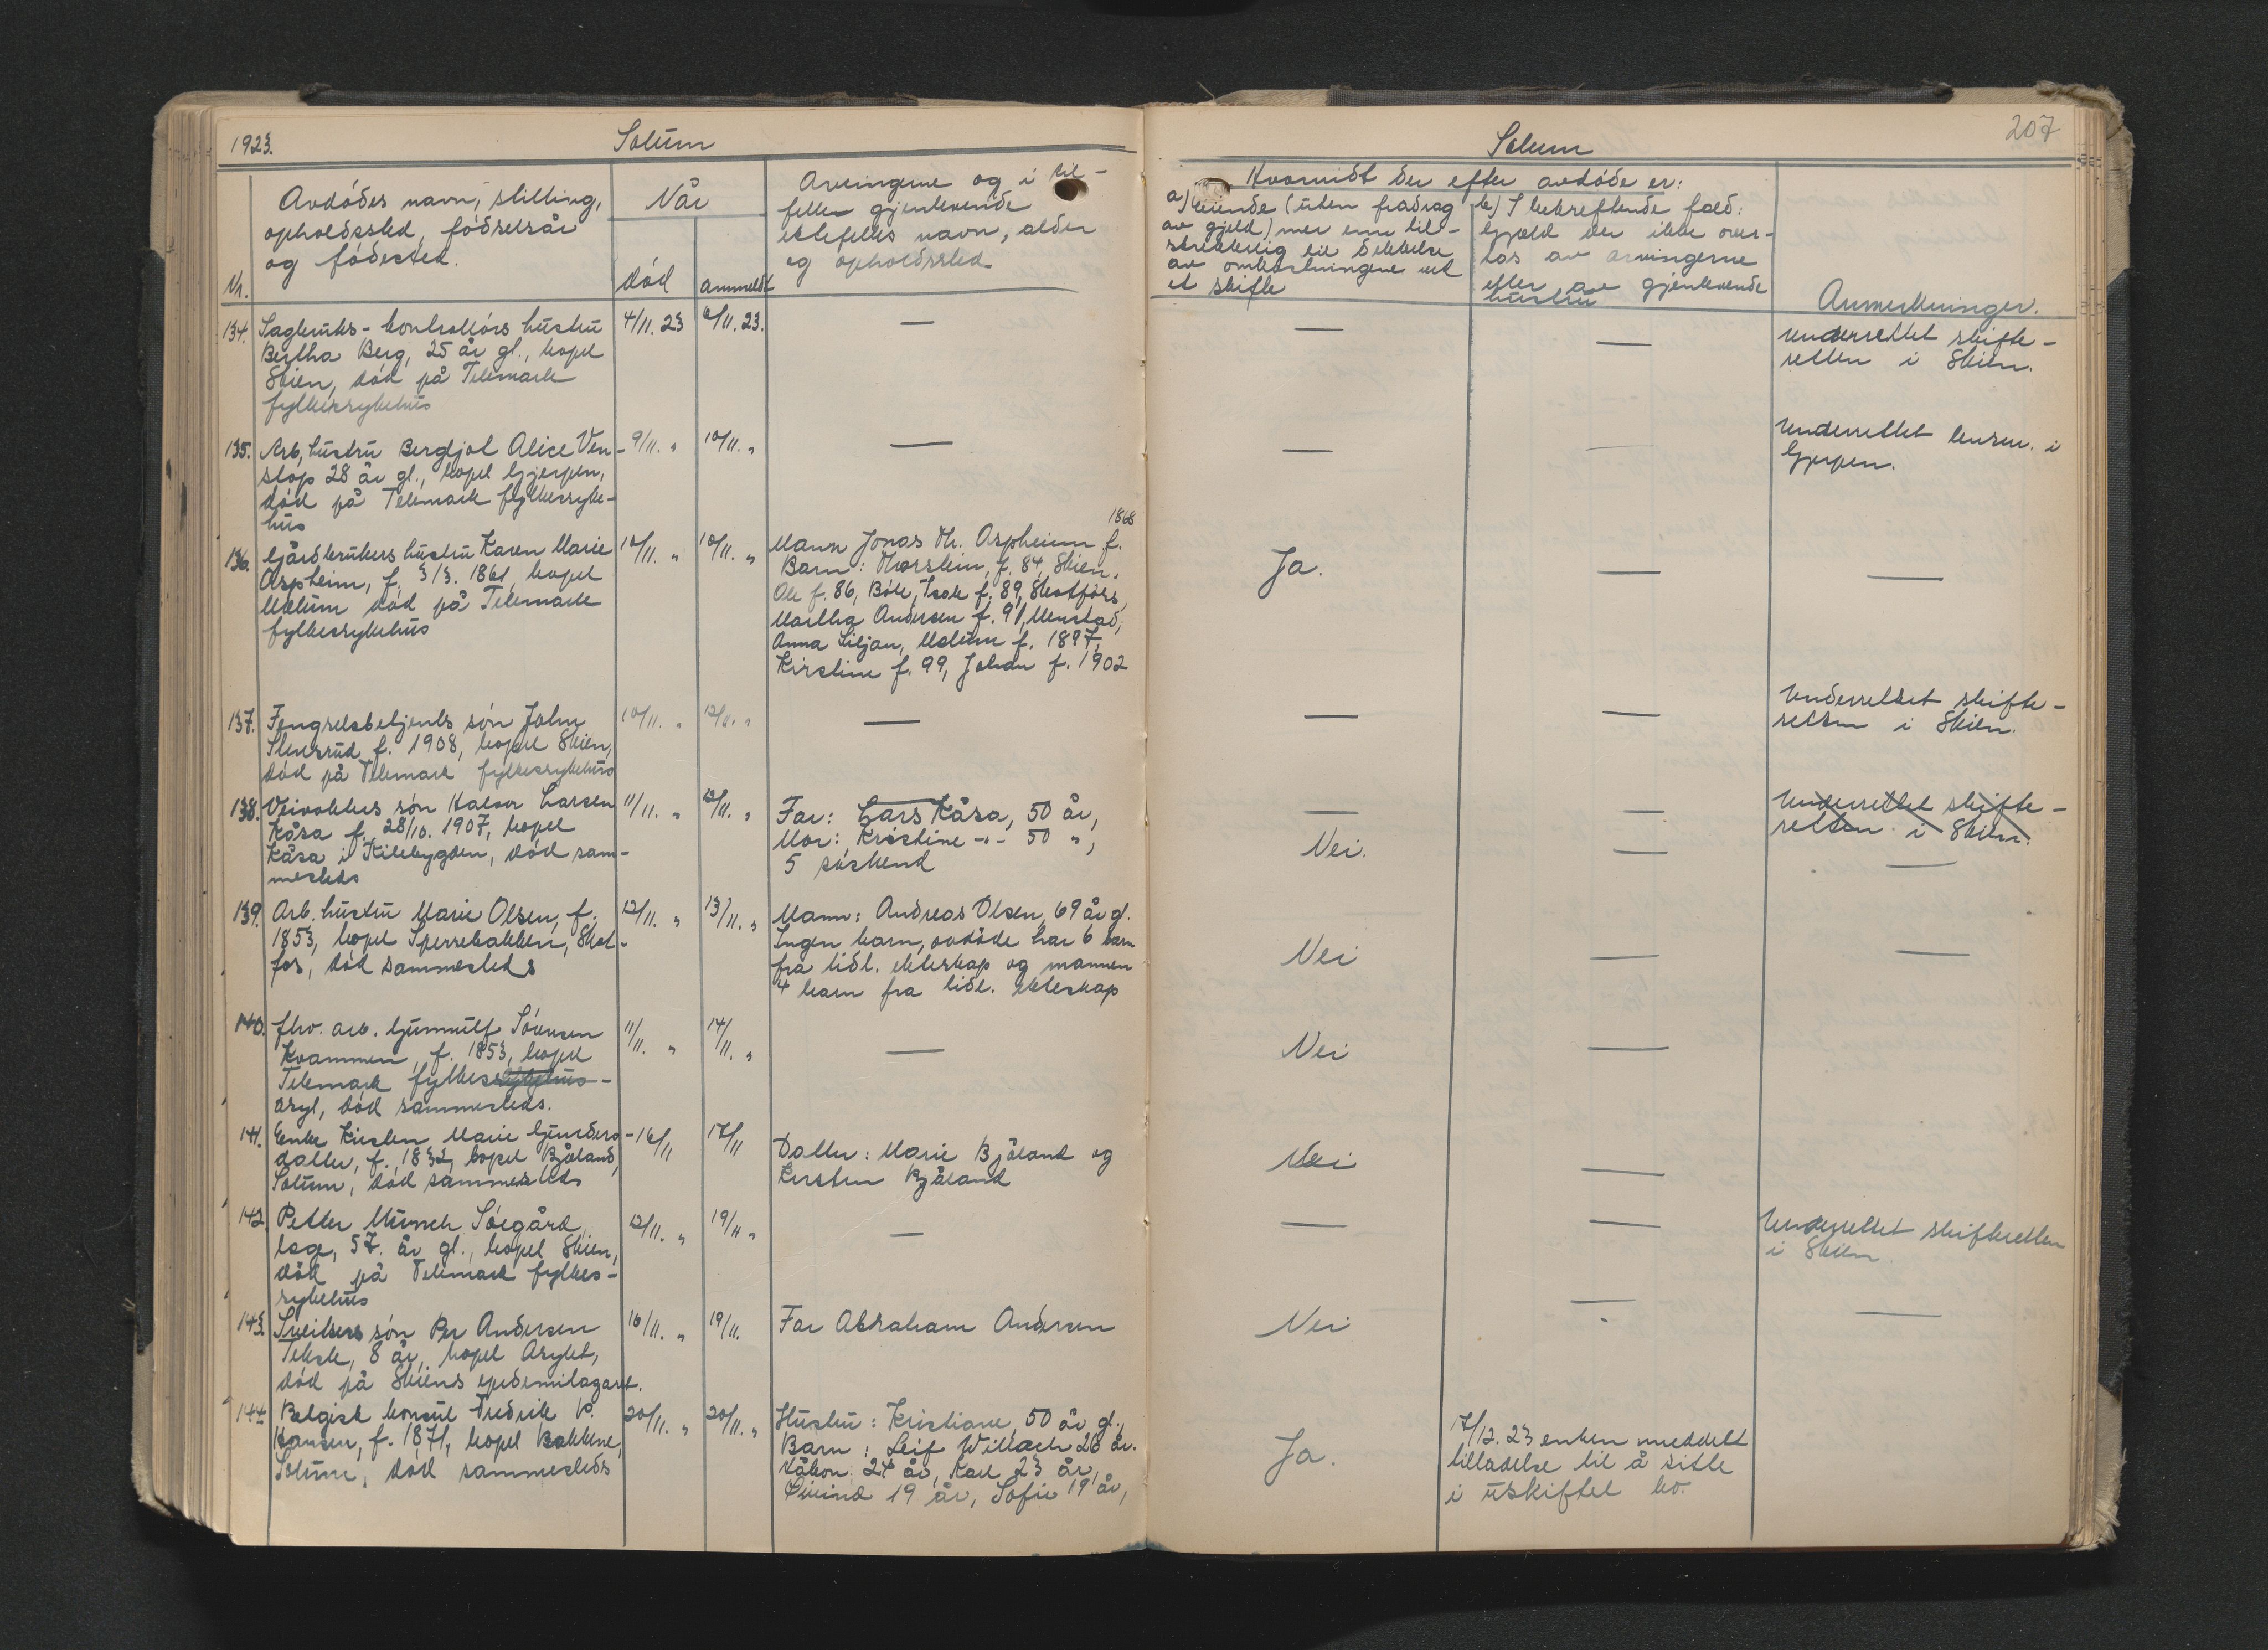 1923.
Solum
Nr.
Avdødes navn, stilling,
opholdssted, fødselsår
og fødested.
Når
død
anmeldt
Arvingerne og i til-
felle gjenlevende
ektefelles navn, alder
og opholdssted
134. Sagbruks-kontrollørs hustru
Bertha Berg, 25 år gl., bopel
Skien, død på Telemark
fylkessykehus
4/11. 23
6/11. 23.
—
135. Arb. hustru Bergljot Alice Ven-
stop 28 år gl., bopel Gjerpen,
død på Telemark fylkessyke-
hus
9/11. "
10/11. "
—
136. Gårdbrukers hustru Karen Marie
Aspheim, f. 3/3. 1861, bopel
Melum død på Telemark
fylkessykehus
10/11. "
10/11. "
1868
Mann Jonas Th. Aspheim f.
Barn: Thorstein, f. 84, Skien,
Ole f. 86, Böle, Isak f. 89, Skotfoss,
Martha Andersen f. 91, Menstad,
Anna Liljan, Melum f. 1897,
Kirstine f. 99, Johan f. 1902
137. Fengselsbetjents søn John
Stensrud f. 1908, bopel Skien,
død på Telemark fylkessykehus
10/11. "
12/11. "
—
138. Veivokters søn Halvor Larsen
Kåsa f. 28/10. 1907, bopel
Kåsa i Kilebygden, død sam-
mesteds
11/11. "
12/11. "
Far: Lars Kåsa, 50 år,
Mor: Kristine -"- 50 ",
5 søskend
139. Arb. hustru Marie Olsen, f.
1853, bopel Sperrebakken, Skot-
fos, død sammesteds
12/11. "
13/11. "
Mann: Andreas Olsen, 69 år gl.
Ingen barn, avdøde har 6 barn
fra tidl. ekteskap og mannen
4 barn fra tidl. ekteskap
140. fhv. arb. Gunnulf Sörensen
Kvammen, f. 1853, bopel
Telemark fylkessykehus-
asyl, død sammesteds.
11/11. "
14/11. "
—
141. Enke Kirsten Marie Gunders-
datter, f. 1832, bopel Bjåland,
Solum, død sammesteds
16/11
17/11
Datter: Marie Bjåland og
Kirsten Bjåland
142. Petter Munch Söegård,
læge, 57. år gl., bopel Skien,
død på Telemark fylkes-
sykehus
12/11. "
19/11 "
—
143. Sveitsers søn Per Andersen
Teksle, 8 år, bopel Asylet,
død på Skiens epidemilasaret.
16/11. "
19/11.
Far Abraham Andersen
144. Belgisk konsul Fredrik V.
Hansen, f. 1871, bopel Bakkene,
Solum, død sammesteds
20/11. "
20/11. "
Hustru: Kristiane, 50 år gl.,
Barn: Leif Willach 26 år.
Håkon 24 år, Karl 23 år,
Øivind 19 år, Sofie 19 år,
207
Solum
Hvorvidt der efter avdøde er:
a) Eiende (uten fradrag
av gjeld) mer enn til-
strekkelig til dekkelse
av omkostningene ved
et skifte
b) I bekreftende fald:
Gjæld der ikke over-
tas av arvingerne
eller av gjenlevende
hustru
Anmerkninger.
— — Underrettet skifte-
retten i Skien.
— — Underrettet lensm. i
Gjerpen.
Ja. — —
— — Underrettet skifte-
retten i Skien.
— — Underrettet skifte-
retten i Skien.
Nei. — —
Nei — —
Nei —
Nei —
— — Underrettet skifteretten
i Skien
Nei — —
Ja.
17/12. 23 enken meddelt
tilladelse til å sitte
i uskiftet bo.